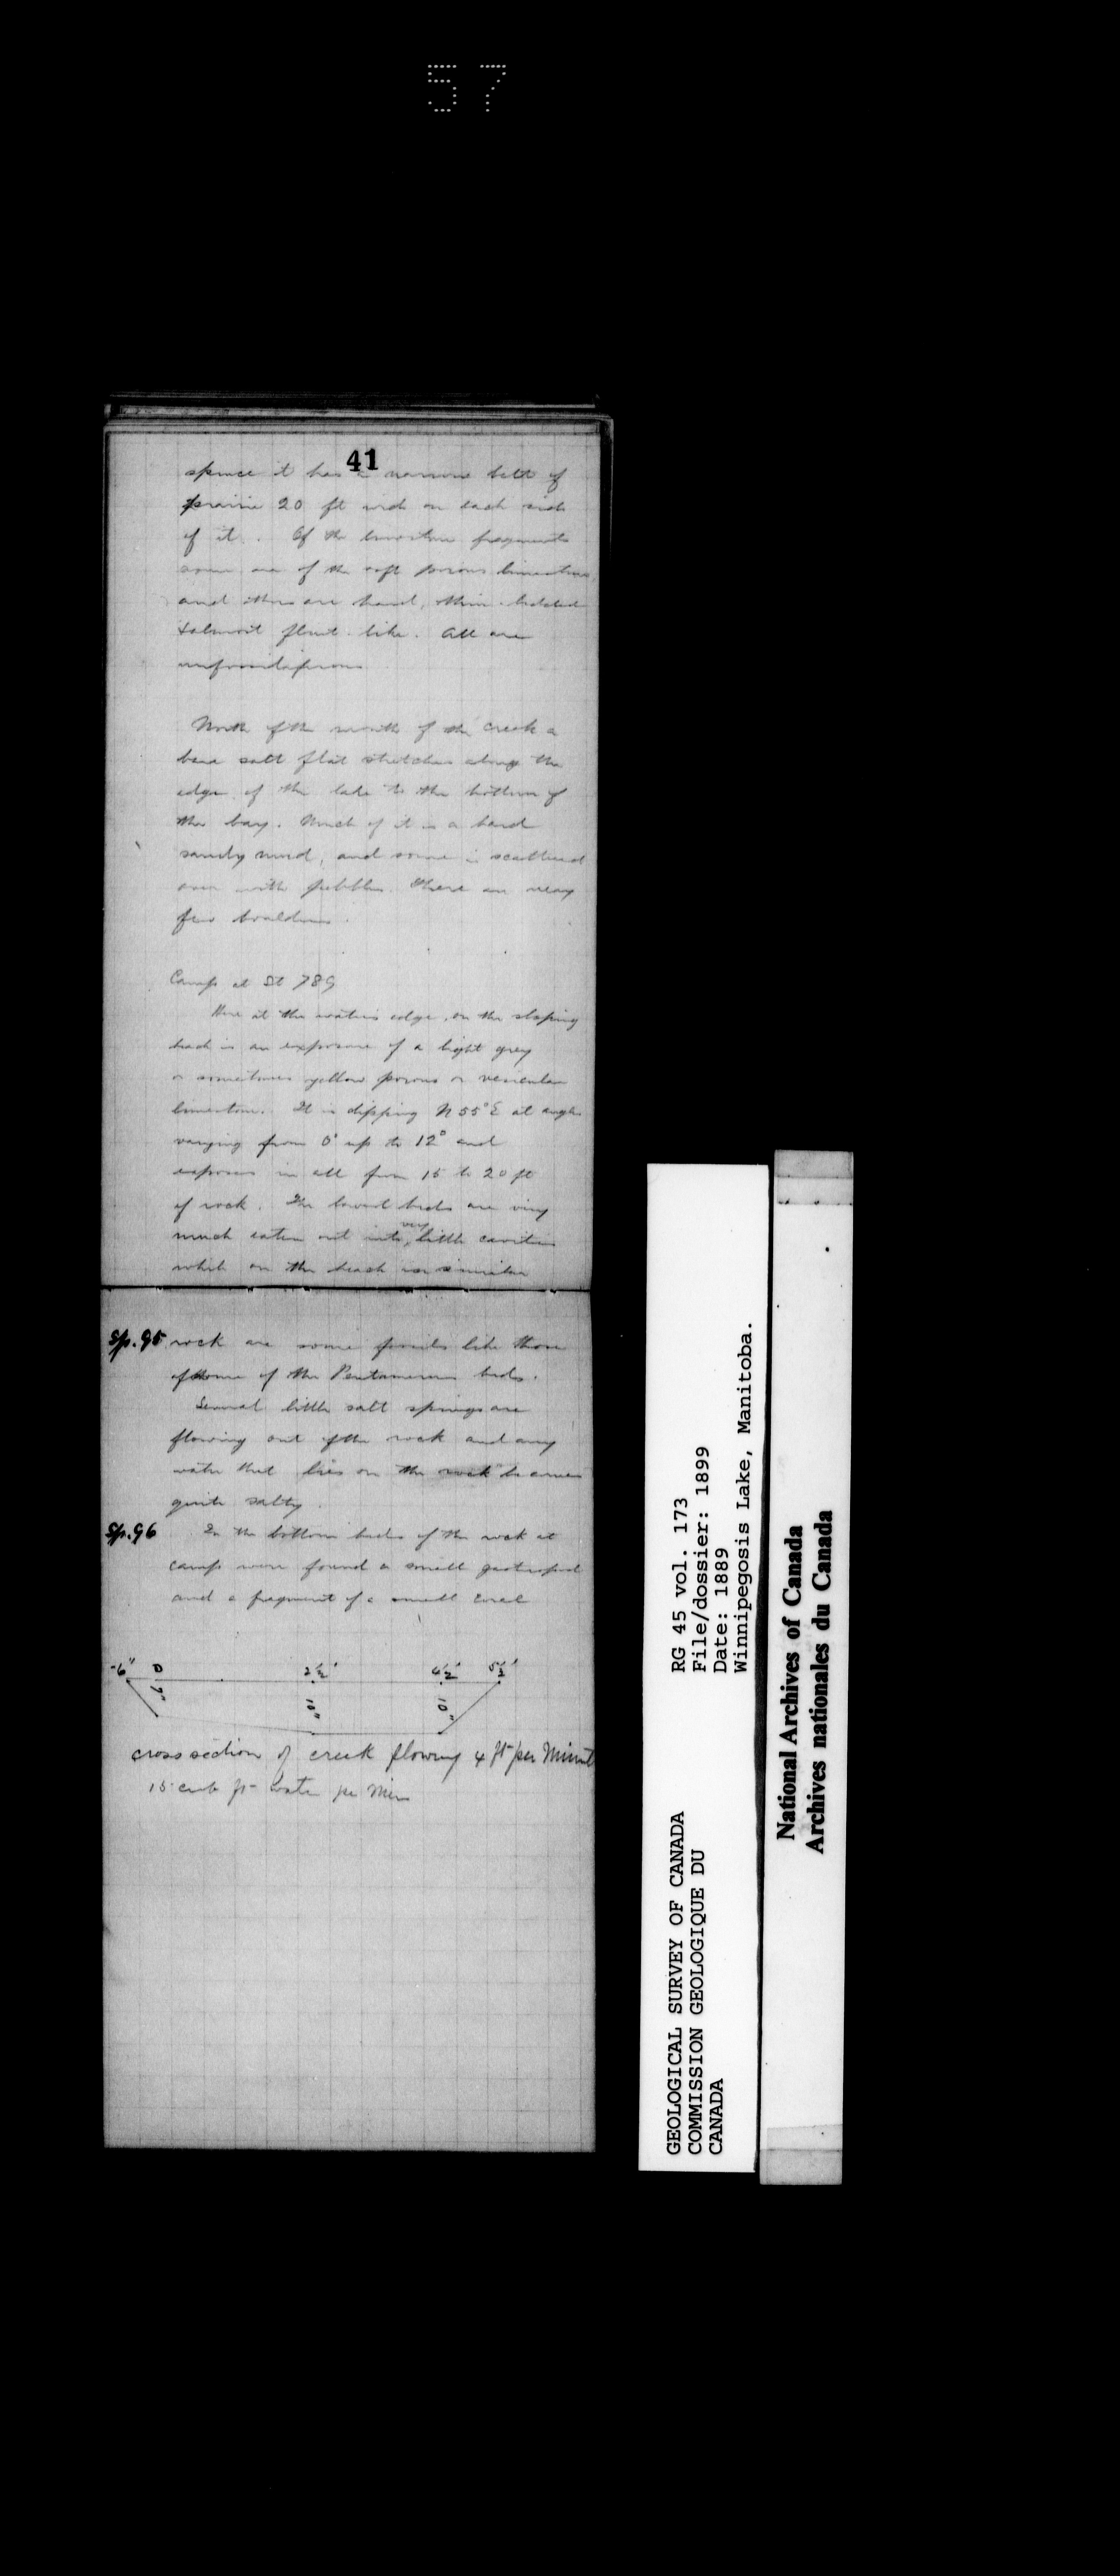 57
41
spruce it has a narrow belt of
prairie 20 ft wide on each side
of it. Of the limestone fragments
some are of the soft porous limestone
and others are hard, thin-bedded
& almost flint-like. All are
unfossiliferous
North of the mouth of the creek a
bare salt flat stretches along the
edge of the lake to the bottom of
the bay. Much of it is a hard
sandy mud, and some is scattered
over with pebbles. There are very
few boulders.
Camp at St 789
Here at the waters edge, on the sloping
beach is an exposure of a light grey
or sometimes yellow porous or vesicular
limestone. It is dipping N 55° E at angles
varying from 0° up to 12° and
exposes in all from 15 to 20 ft
of rock. The lowest beds are very
much eaten out into very little cavities
while on the beach in similar
Sp. 95 rock are some fossils like those
of some of the Pentamerus beds.
Several little salt springs are
flowing out of the rock and any
water that lies on the rock becomes
quite salty.
Sp. 96 In the bottom beds of the rock at
camp were found a small gastropod
and a fragment of a small coral
-6" 0 2½' 4½' 5½'
10" 10"
cross section of creek flowing 4 ft per Minute
15 cub ft water per Min
RG 45 vol. 173
File/dossier: 1899
Date: 1889
Winnipegosis Lake, Manitoba.
GEOLOGICAL SURVEY OF CANADA
COMMISSION GEOLOGIQUE DU
CANADA
National Archives of Canada
Archives nationales du Canada